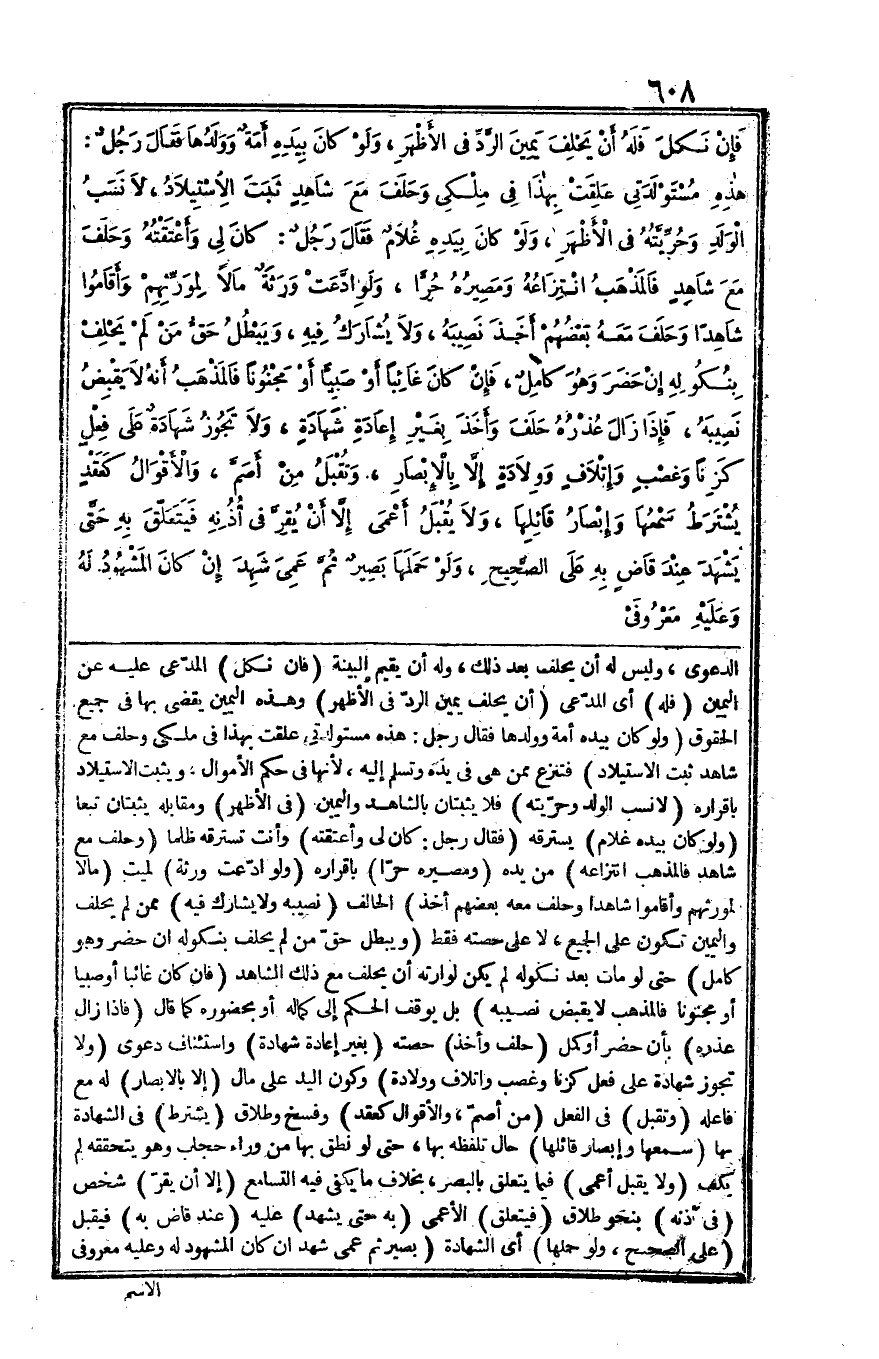 ٦٠٨
فَإِنْ نَـكَلَ فَلَهُ أَنْ يَحْلِفَ يَمِينَ الرَّدِّ فى الأَظْهَرِ ، وَلَوْ كانَ بِيَدِهِ أَمَةٌ وَوَلَدُهَا فَقَالَ رَجُلٌ :
هٰذِهِ مُسْتَوْلَدَتِي عَلِقَتْ بِهٰذَا فِى مِلْـكِي وَحَلَفَ مَعَ شَاهِدٍ ثَبَتَ الِاسْتِيلَادُ ، لاَ نَسَبُ
الْوَلَدِ وَحُرِّيَّتُهُ فى الْأَظْهَرِ ، وَلَوْ كانَ بِيَدِهِ غُلَامٌ فَقَالَ رَجُلٌ : كانَ لِى وَأَعْتَقْتُهُ وَحَلَفَ
مَعَ شَاهِدٍ فَالمَذْهَبُ انْتِزَاعُهُ وَمَصِيرُهُ حُرًّا ، وَلَوِ ادَّعَتْ وَرَثَةٌ مَالاً لِمُوَرِّثِهِمْ وَأَقَامُوا
شَاهِدًا وَحَلَفَ مَعَـهُ بَعْضُهُمْ أَخَـذَ نَصِيبَهُ ، وَلاَ يُشَارَكُ فِيهِ ، وَيَبْطُلُ حَقُّ مَنْ لَمْ يَحْلِفْ
بِنُـكُولِهِ إِنْ حَضَرَ وَهُوَ كامِلٌ ، فَإِنْ كانَ غَائِبًا أَوْ صَبِيًّا أَوْ مَجْنُونًا فَالمَذْهَبُ أَنهُ لاَ يَقْبِضُ
نَصِيبَهُ ، فَإِذَا زَالَ عُذْرُهُ حَلَفَ وَأَخَذَ بِغَيْرِ إِعَادَةِ شَهَادَةٍ ، وَلاَ تَجُوزُ شَهَادَةٌ عَلَى فِعْلٍ
كَزِنًا وَغَصْبٍ وَإِتْلاَفٍ وَوِلاَدَةٍ إِلَّا بِالْإِبْصَارِ ، وَتُقْبَلُ مِنْ أَصَمَّ ، وَالْأَقْوَالُ كَعَقْدٍ
يُشْتَرَطُ سَمْعُهَا وَإِبْصَارُ قَائِلِهَا ، وَلاَ يُقْبَلُ أَعْمَى إِلَّا أَنْ يُقِرَّ فى أُذُنِهِ فَيَتَعَلَّقَ بِهِ حَتَّى
يَشْهَدَ عِنْدَ قَاضٍ بِهِ عَلَى الصَّحِيحِ ، وَلَوْ حَمَلَهَا بَصِيرٌ ثُمَّ عَمِىَ شَهِدَ إِنْ كانَ المَشْهُودُ لَهُ
وَعَلَيْهِ مَعْرُوفَىْ
الدعوى ، وليس له أن يحلف بعد ذلك ، وله أن يقيم البينة ( فان نـكل ) المدّعى عليـه عن
اليمين ( فله ) أى المدّعى ( أن يحلف يمين الردّ فى الأظهر ) وهـذه اليمين يقضى بها فى جميع
الحقوق ( ولو كان بيده أمة وولدها فقال رجل : هذه مستولدتى علقت بهذا فى ملـكى وحلف مع
شاهد ثبت الاستيلاد ) فتنزع ممن هى فى يده وتسلم إليه ، لأنها فى حكم الأموال : ويثبت الاستيلاد
باقراره ( لانسب الولد وحرّيته ) فلا يثبتان بالشاهـد واليمين ( فى الأظهر ) ومقابله يثبتان تبعا
( ولو كان بيده غلام ) يسترقه ( فقال رجل : كان لى وأعتقته ) وأنت تسترقه ظلما ( وحلف مع
شاهد فالمذهب انتزاعه ) من يده ( ومصـيره حرّا ) باقراره ( ولو ادّعت ورثة ) لميت ( مالا
لمورثهم وأقاموا شاهدا وحلف معه بعضهم أخذ ) الحالف ( نصيبه ولا يشارك فيه ) ممن لم يحلف
واليمين تـكون على الجميع ، لا على حصته فقط ( ويبطل حقّ من لم يحلف بنـكوله ان حضر وهو
كامل ) حتى لو مات بعد نـكوله لم يكن لوارثه أن يحلف مع ذلك الشاهد ( فان كان غائبا أوصبيا
أو مجنونا فالمذهب لا يقبض نصـيبه ) بل يوقف الحـكم إلى كماله أو بحضوره كما قال ( فاذا زال
عذره ) بأن حضر أوكمل ( حلف وأخذ ) حصته ( بغير إعادة شهادة ) واستئناف دعوى ( ولا
تجوز شهادة على فعل كزنا وغصب واتلاف وولادة ) وكون اليد على مال ( إلا بالابصار ) له مع
فاعله ( وتقبل ) فى الفعل ( من أصمّ ، والأقوال كعقد ) وفسخ وطلاق ( يشترط ) فى الشهادة
بها ( سـمعها وإبصار قائلها ) حال تلفظه بها ، حتى لو نطق بها من وراء حجاب وهو يتحققه لم
يكف ( ولا يقبل أعمى ) فيما يتعلق بالبصر ، بخلاف ما يكفى فيه التسامع ( إلا أن يقرّ ) شخص
( فى أذنه ) بنحو طلاق ( فيتعلق ) الأعمى ( به حتى يشهد ) عليه ( عند قاض به ) فيقبل
( على الصحيح ، ولو حملها ) أى الشهادة ( بصير ثم عمى شهد ان كان المشهود له وعليه معروفى
الاسم